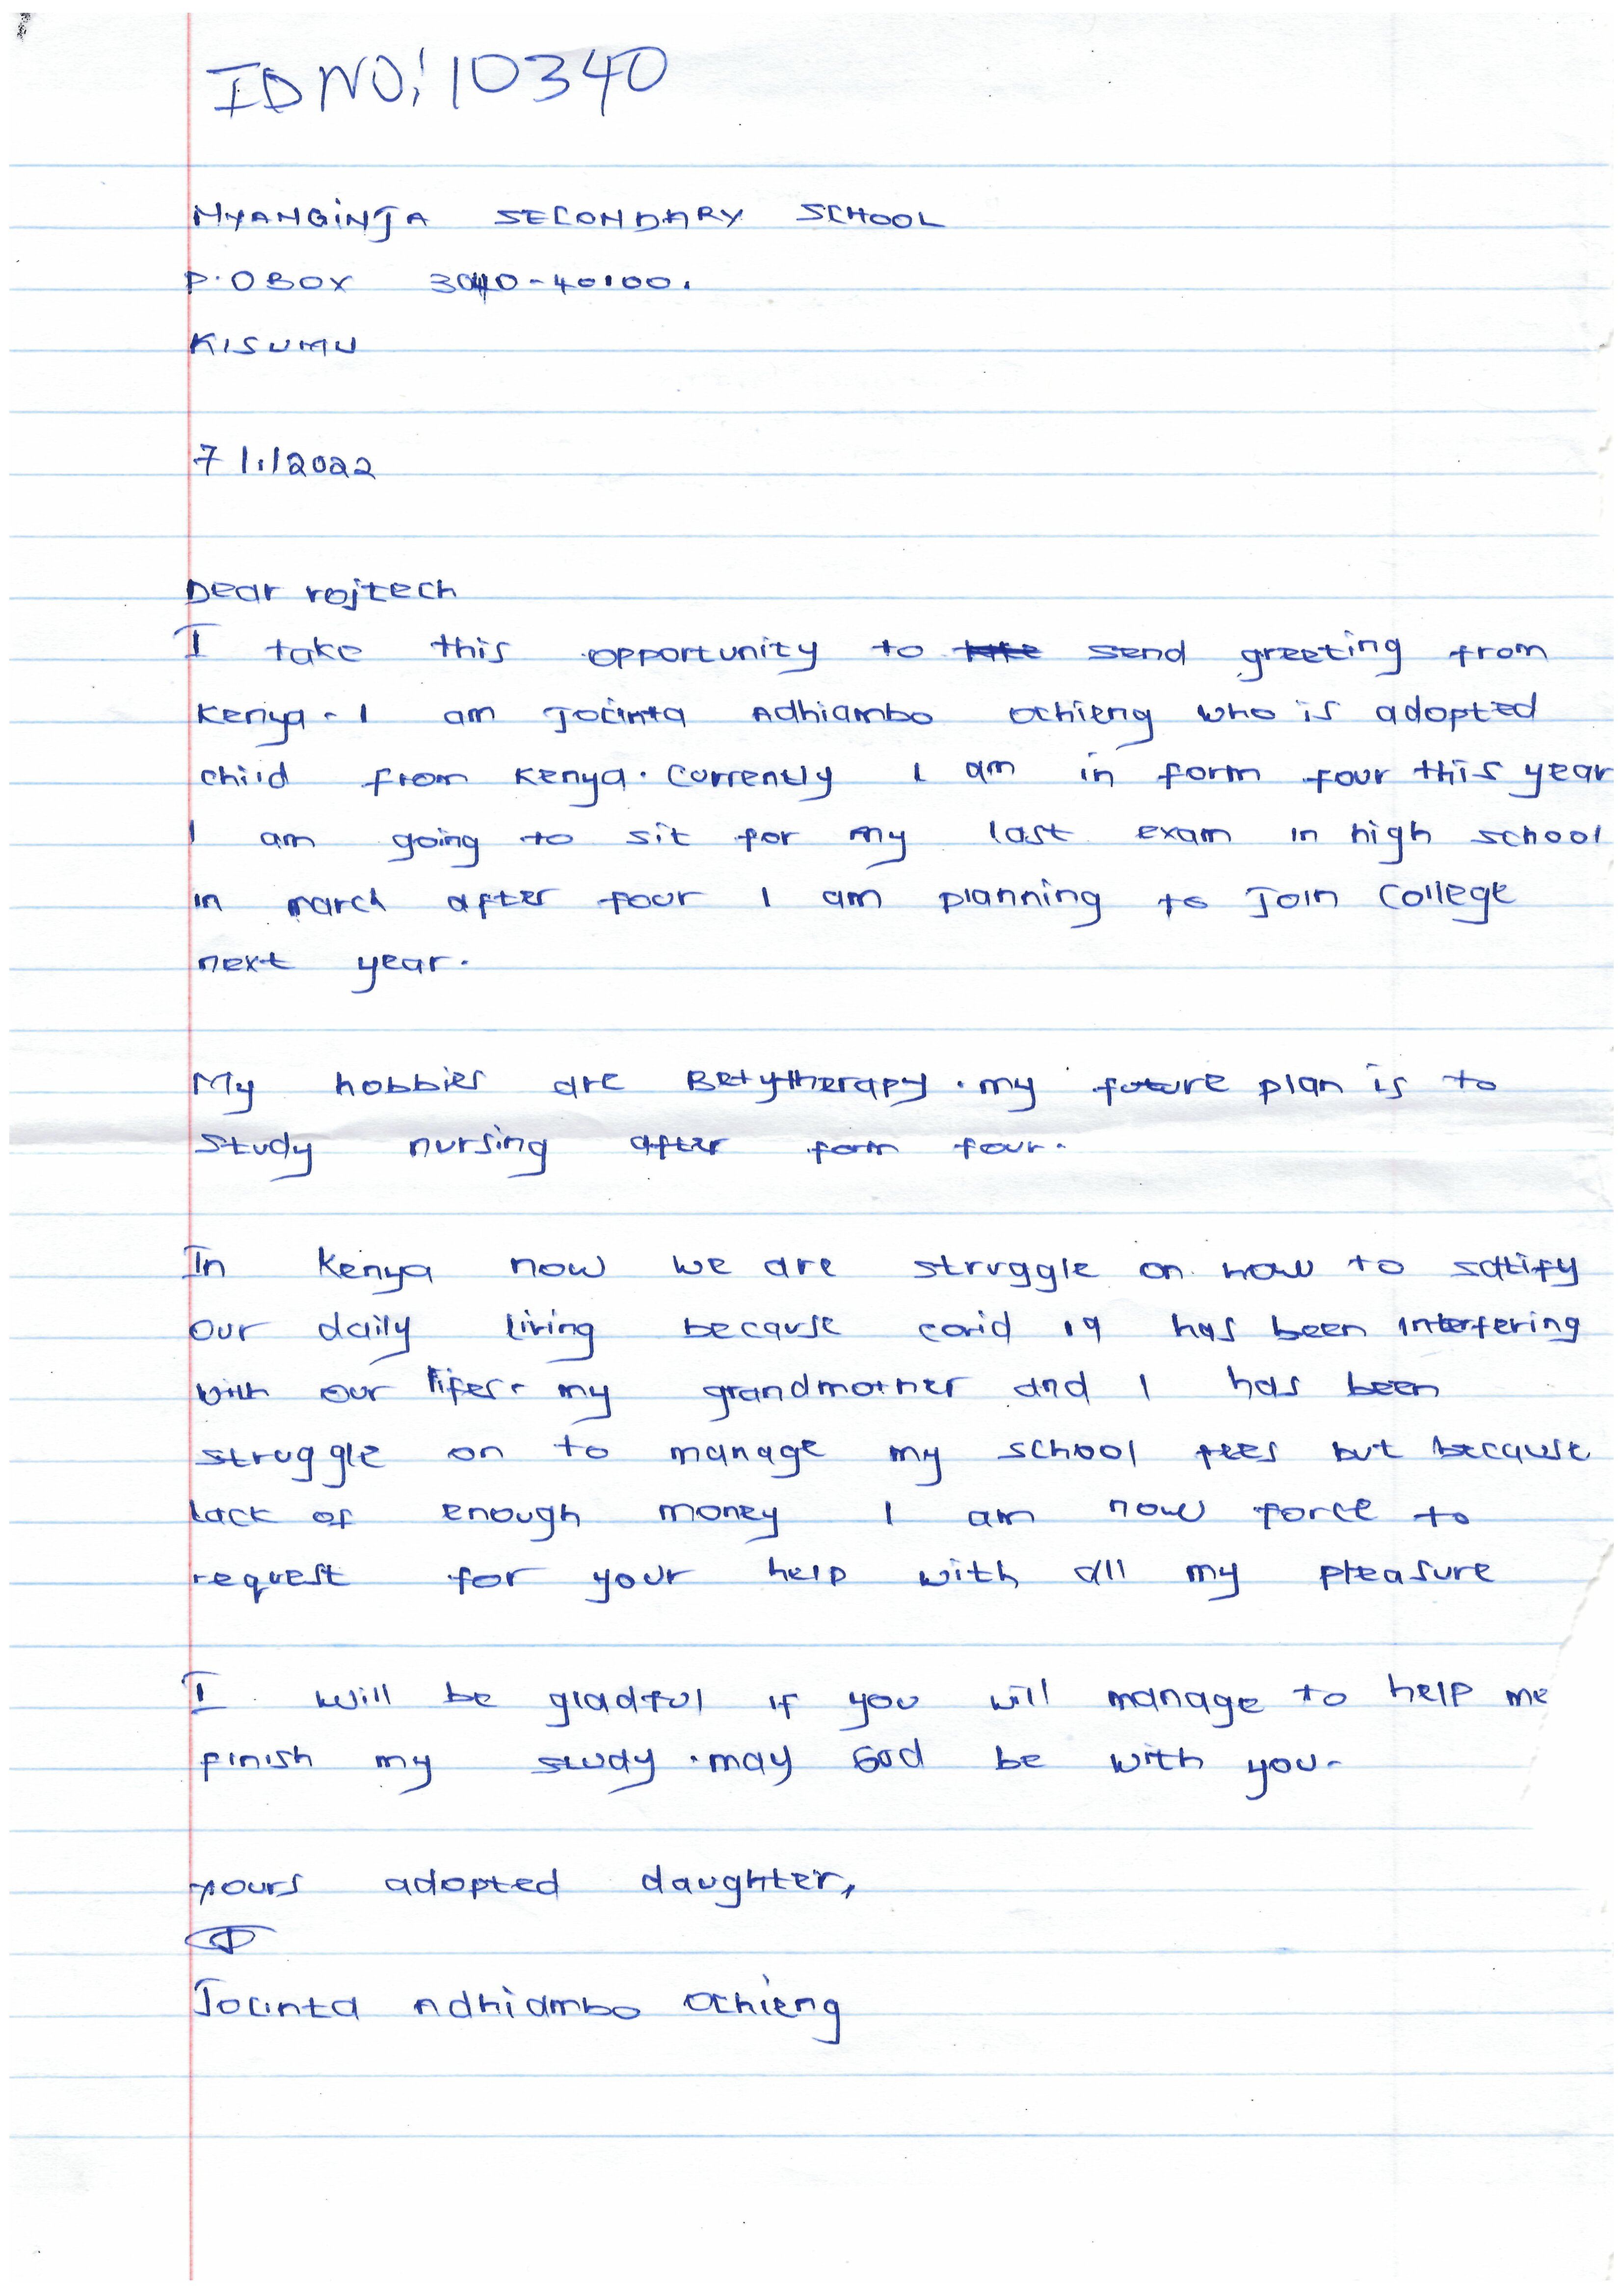 ID NO: 10340
NYANGINJA SECONDARY SCHOOL
P.O BOX 3040-40100.
KISUMU
7/1/2022
Dear rojtech
I take this opportunity to send greeting from
Kenya. I am Jocinta Adhiambo Ochieng who is adopted
child from Kenya. Currently I am in form four this year
I am going to sit for my last exam in high school
in march after four I am planning to Join College
next year.
My hobbies are Betytherapy. my future plan is to
study nursing after form four.
In Kenya now we are struggle on how to satify
our daily living because covid 19 has been interfering
with our lifes. my grandmother and I has been
struggle on to manage my school fees but because
lack of enough money I am now force to
request for your help with all my pleasure
I will be gladful if you will manage to help me
finish my study. may God be with you.
yours adopted daughter,
Jocinta Adhiambo Ochieng